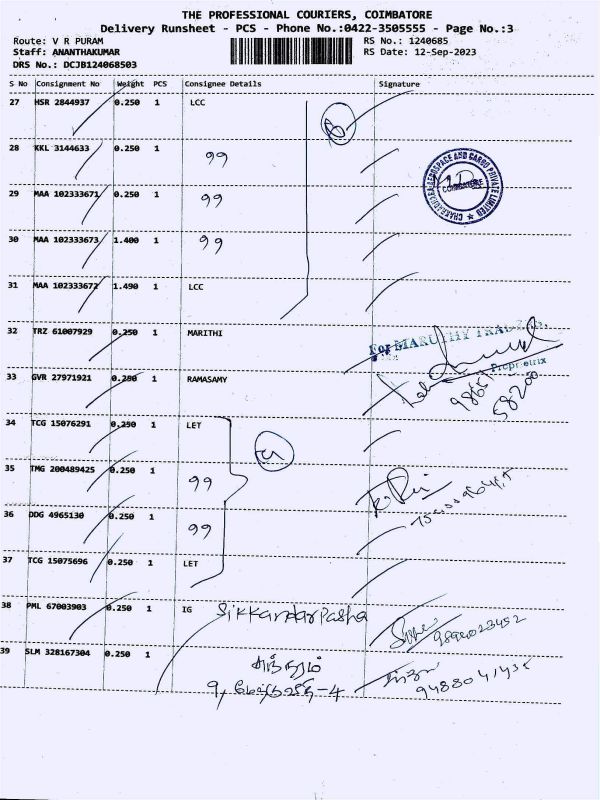 THE PROFESSIONAL COURIERS, COIMBATORE
Delivery Runsheet - PCS - Phone No.:0422-3505555 - Page No.:3
Route: V R PURAM RS No.: 1240685
Staff: ANANTHAKUMAR RS Date: 12-Sep-2023
DRS No.: DCJB124068503
S No Consignment No Weight PCS Consignee Details Signature
27 HSR 2844937 0.250 1 LCC
28 KKL 3144633 0.250 1 99
29 MAA 102333671 0.250 1 99
30 MAA 102333673 1.400 1 99
31 MAA 102333672 1.490 1 LCC
CHAKRADHARA AEROSPACE AND CARGO PRIVATE LIMITED
COIMBATORE
32 TRZ 61007929 0.250 1 MARITHI
For MARUTHY TRADERS
Proprietrix
33 GVR 27971921 0.250 1 RAMASAMY
98651
58200
34 TCG 15076291 0.250 1 LET
35 TMG 200489425 0.250 1 99
36 DDG 4965130 0.250 1 99
37 TCG 15075696 0.250 1 LET
38 PML 67003903 0.250 1 IG Sikkandar Pasha
9894023452
39 SLM 328167304 0.250 1
9488041435